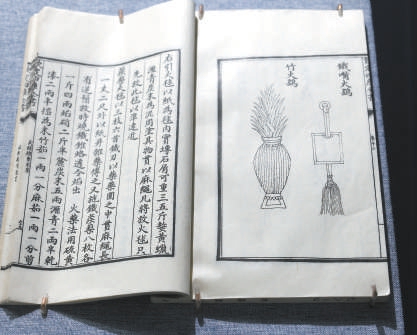 鐵嘴火鷂
竹火鷂
右引火毬以紙為毬內實塼石屑可重三五斤熬黃蠟
瀝青炭末為泥周塗其物貫以麻繩凡將放火毬只
先放此毬以準遠近
蒺藜火毬以三枝六首鐵刃以火藥團之中貫麻繩長
一丈二尺外以紙并雜藥傅之又施鐵蒺藜八枚各
有逆鬚放時燒鐵錐烙透令焰出 火藥法用硫黃
一斤四兩焰硝二斤半麄炭末五兩瀝青二兩半乾
漆二兩半搗為末竹茹一兩一分麻茹一兩一分剪